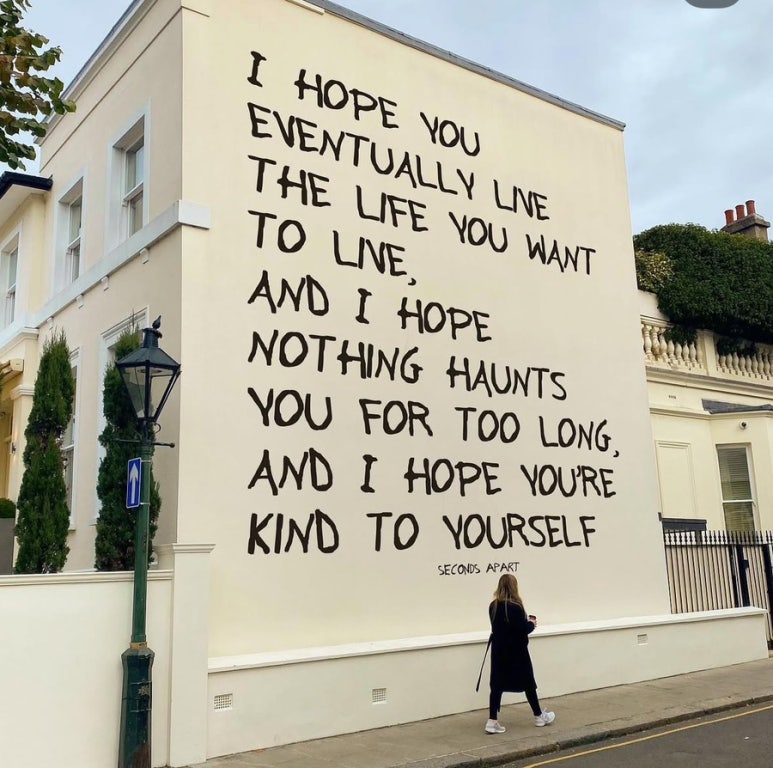 I HOPE YOU
EVENTUALLY LIVE
THE LIFE YOU WANT
TO LIVE,
AND I HOPE
NOTHING HAUNTS
YOU FOR TOO LONG,
AND I HOPE YOU'RE
KIND TO YOURSELF
SECONDS APART